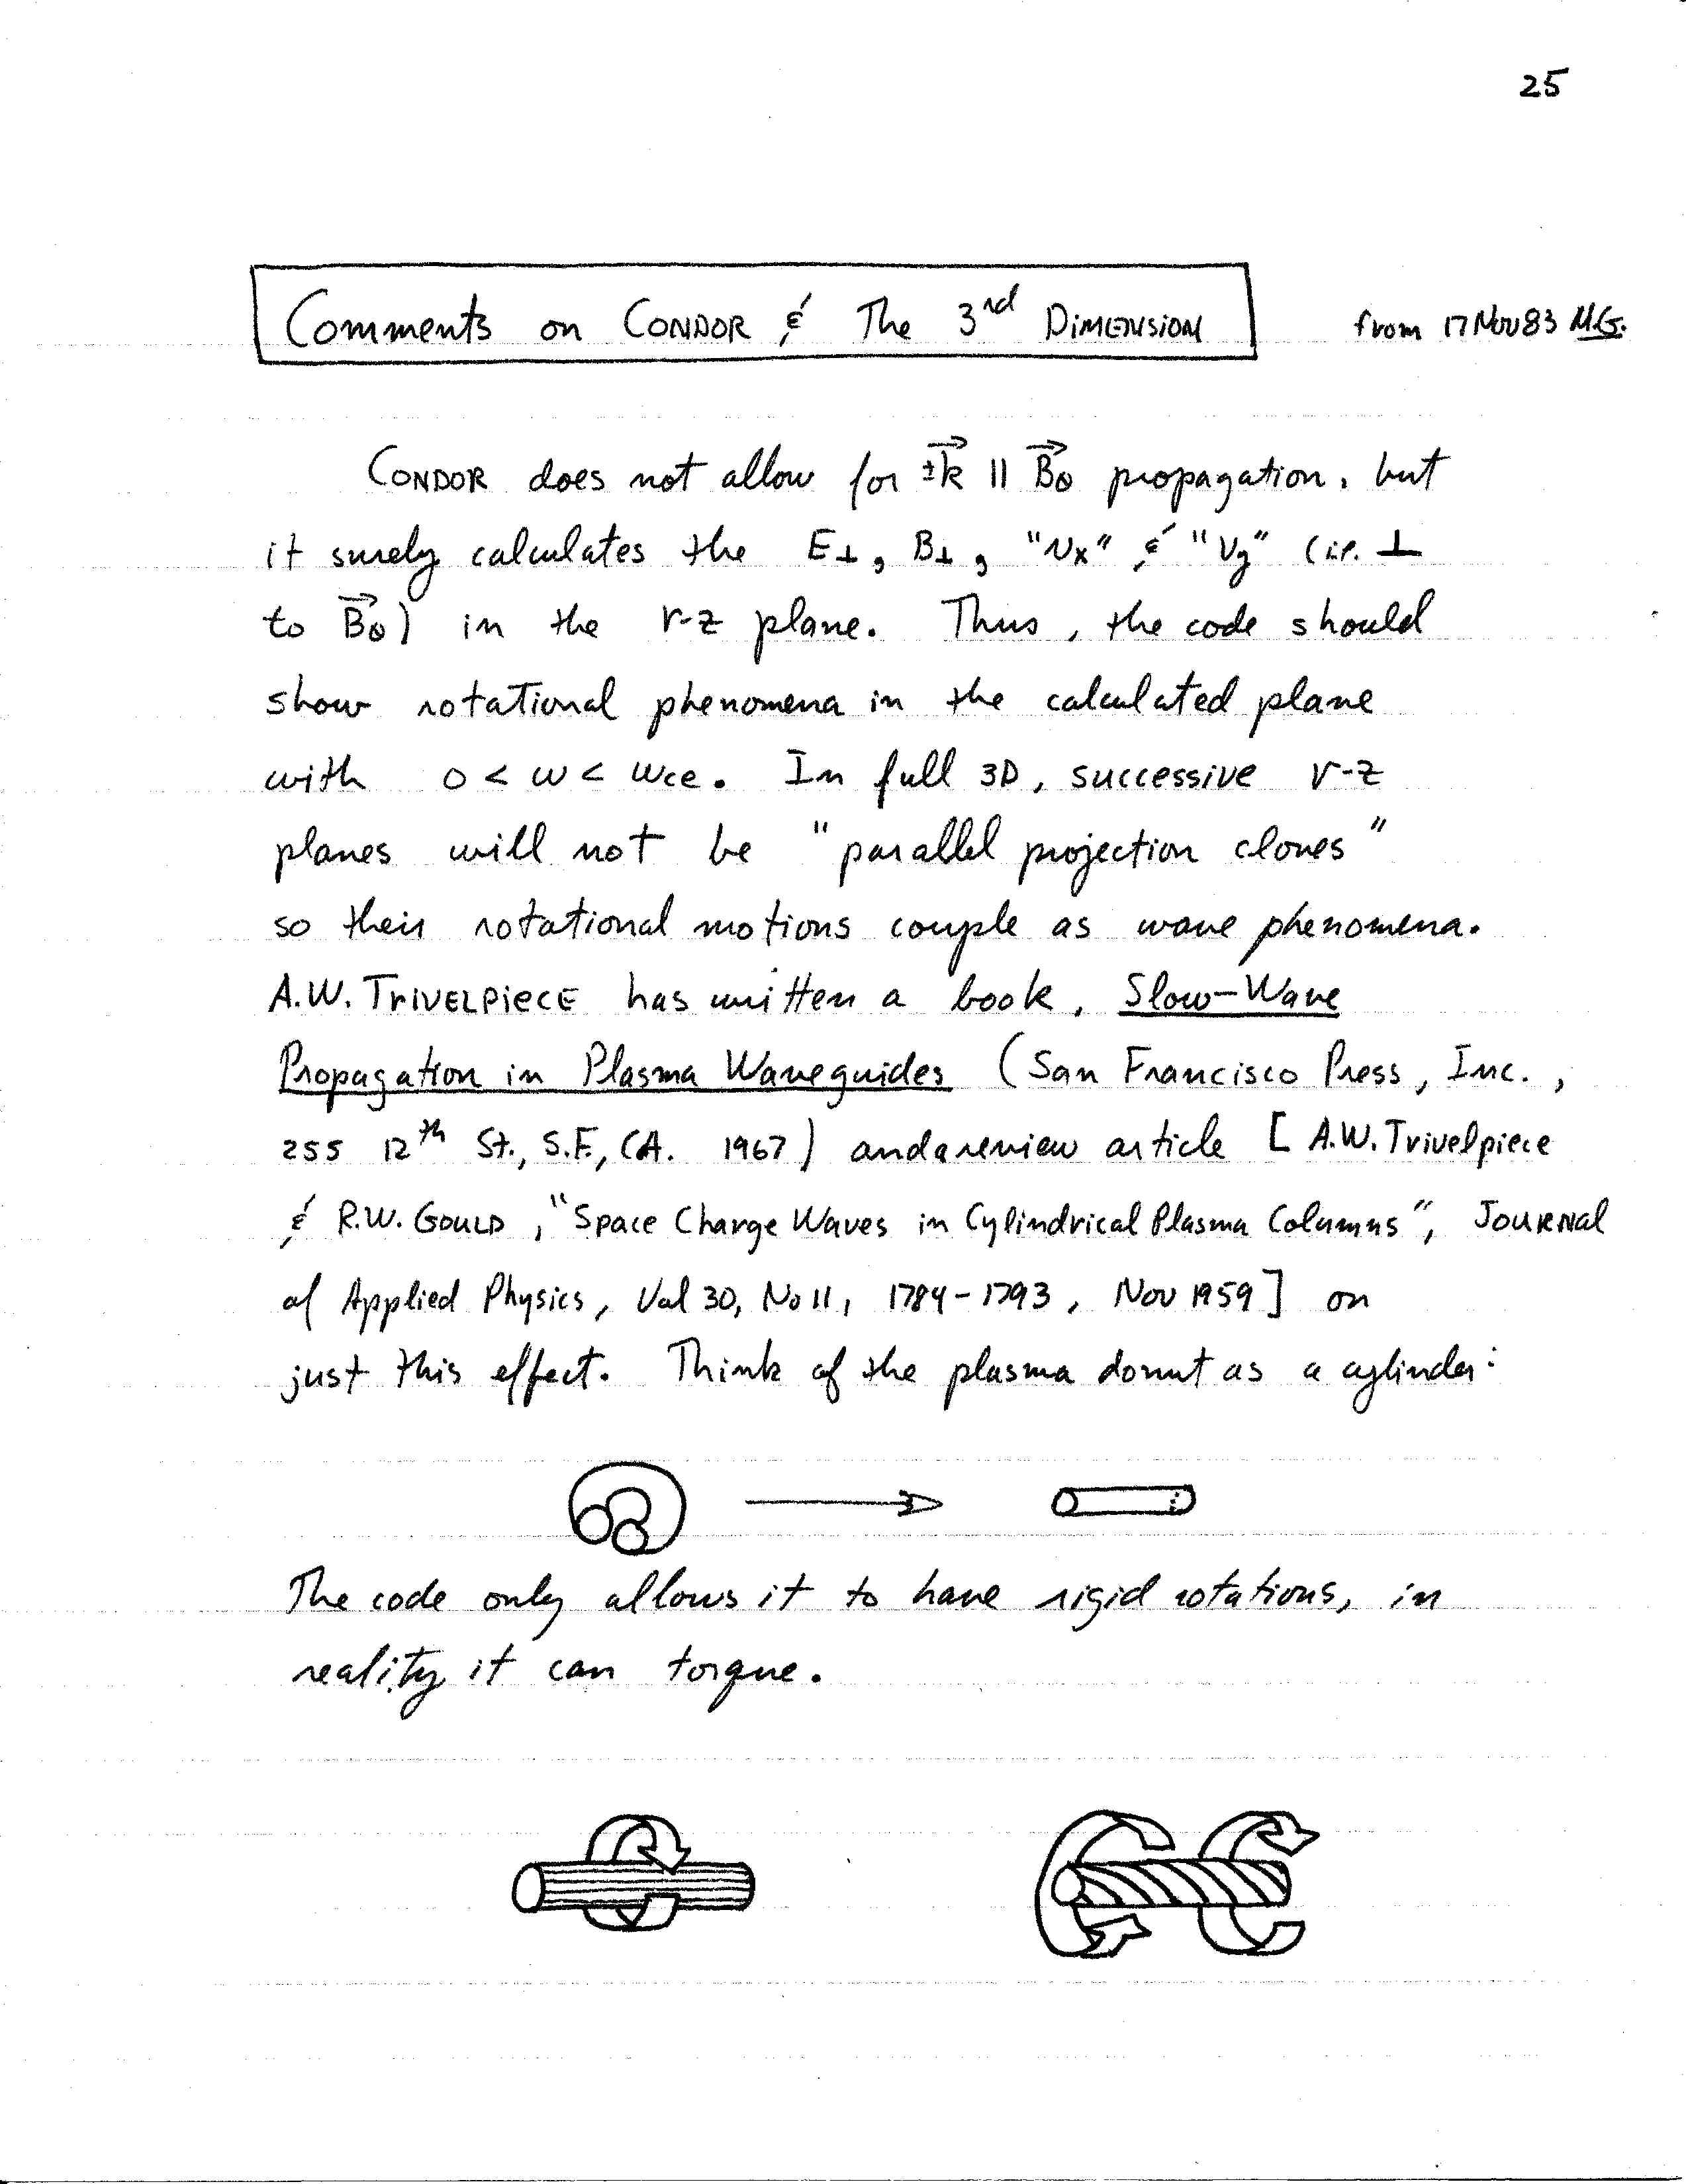 25
Comments on CONDOR & The 3rd DIMENSION from 17 Nov 83 M.G.
CONDOR does not allow for ±k⃗ || B⃗θ propagation, but
it surely calculates the E⊥, B⊥, "Vx" & "Vy" (i.e. ⊥
to B⃗θ) in the r-z plane. Thus, the code should
show rotational phenomena in the calculated plane
with 0 < ω < ωce. In full 3D, successive r-z
planes will not be "parallel projection clones"
so their rotational motions couple as wave phenomena.
A.W. TRIVELPIECE has written a book, Slow-Wave
Propagation in Plasma Waveguides (San Francisco Press, Inc.,
255 12th St., S.F., CA. 1967) and a review article [A.W. Trivelpiece
& R.W. GOULD, "Space Charge Waves in Cylindrical Plasma Columns", JOURNAL
of Applied Physics, Vol 30, No 11, 1784-1793, Nov 1959] on
just this effect. Think of the plasma donut as a cylinder:
The code only allows it to have rigid rotations, in
reality it can torque.